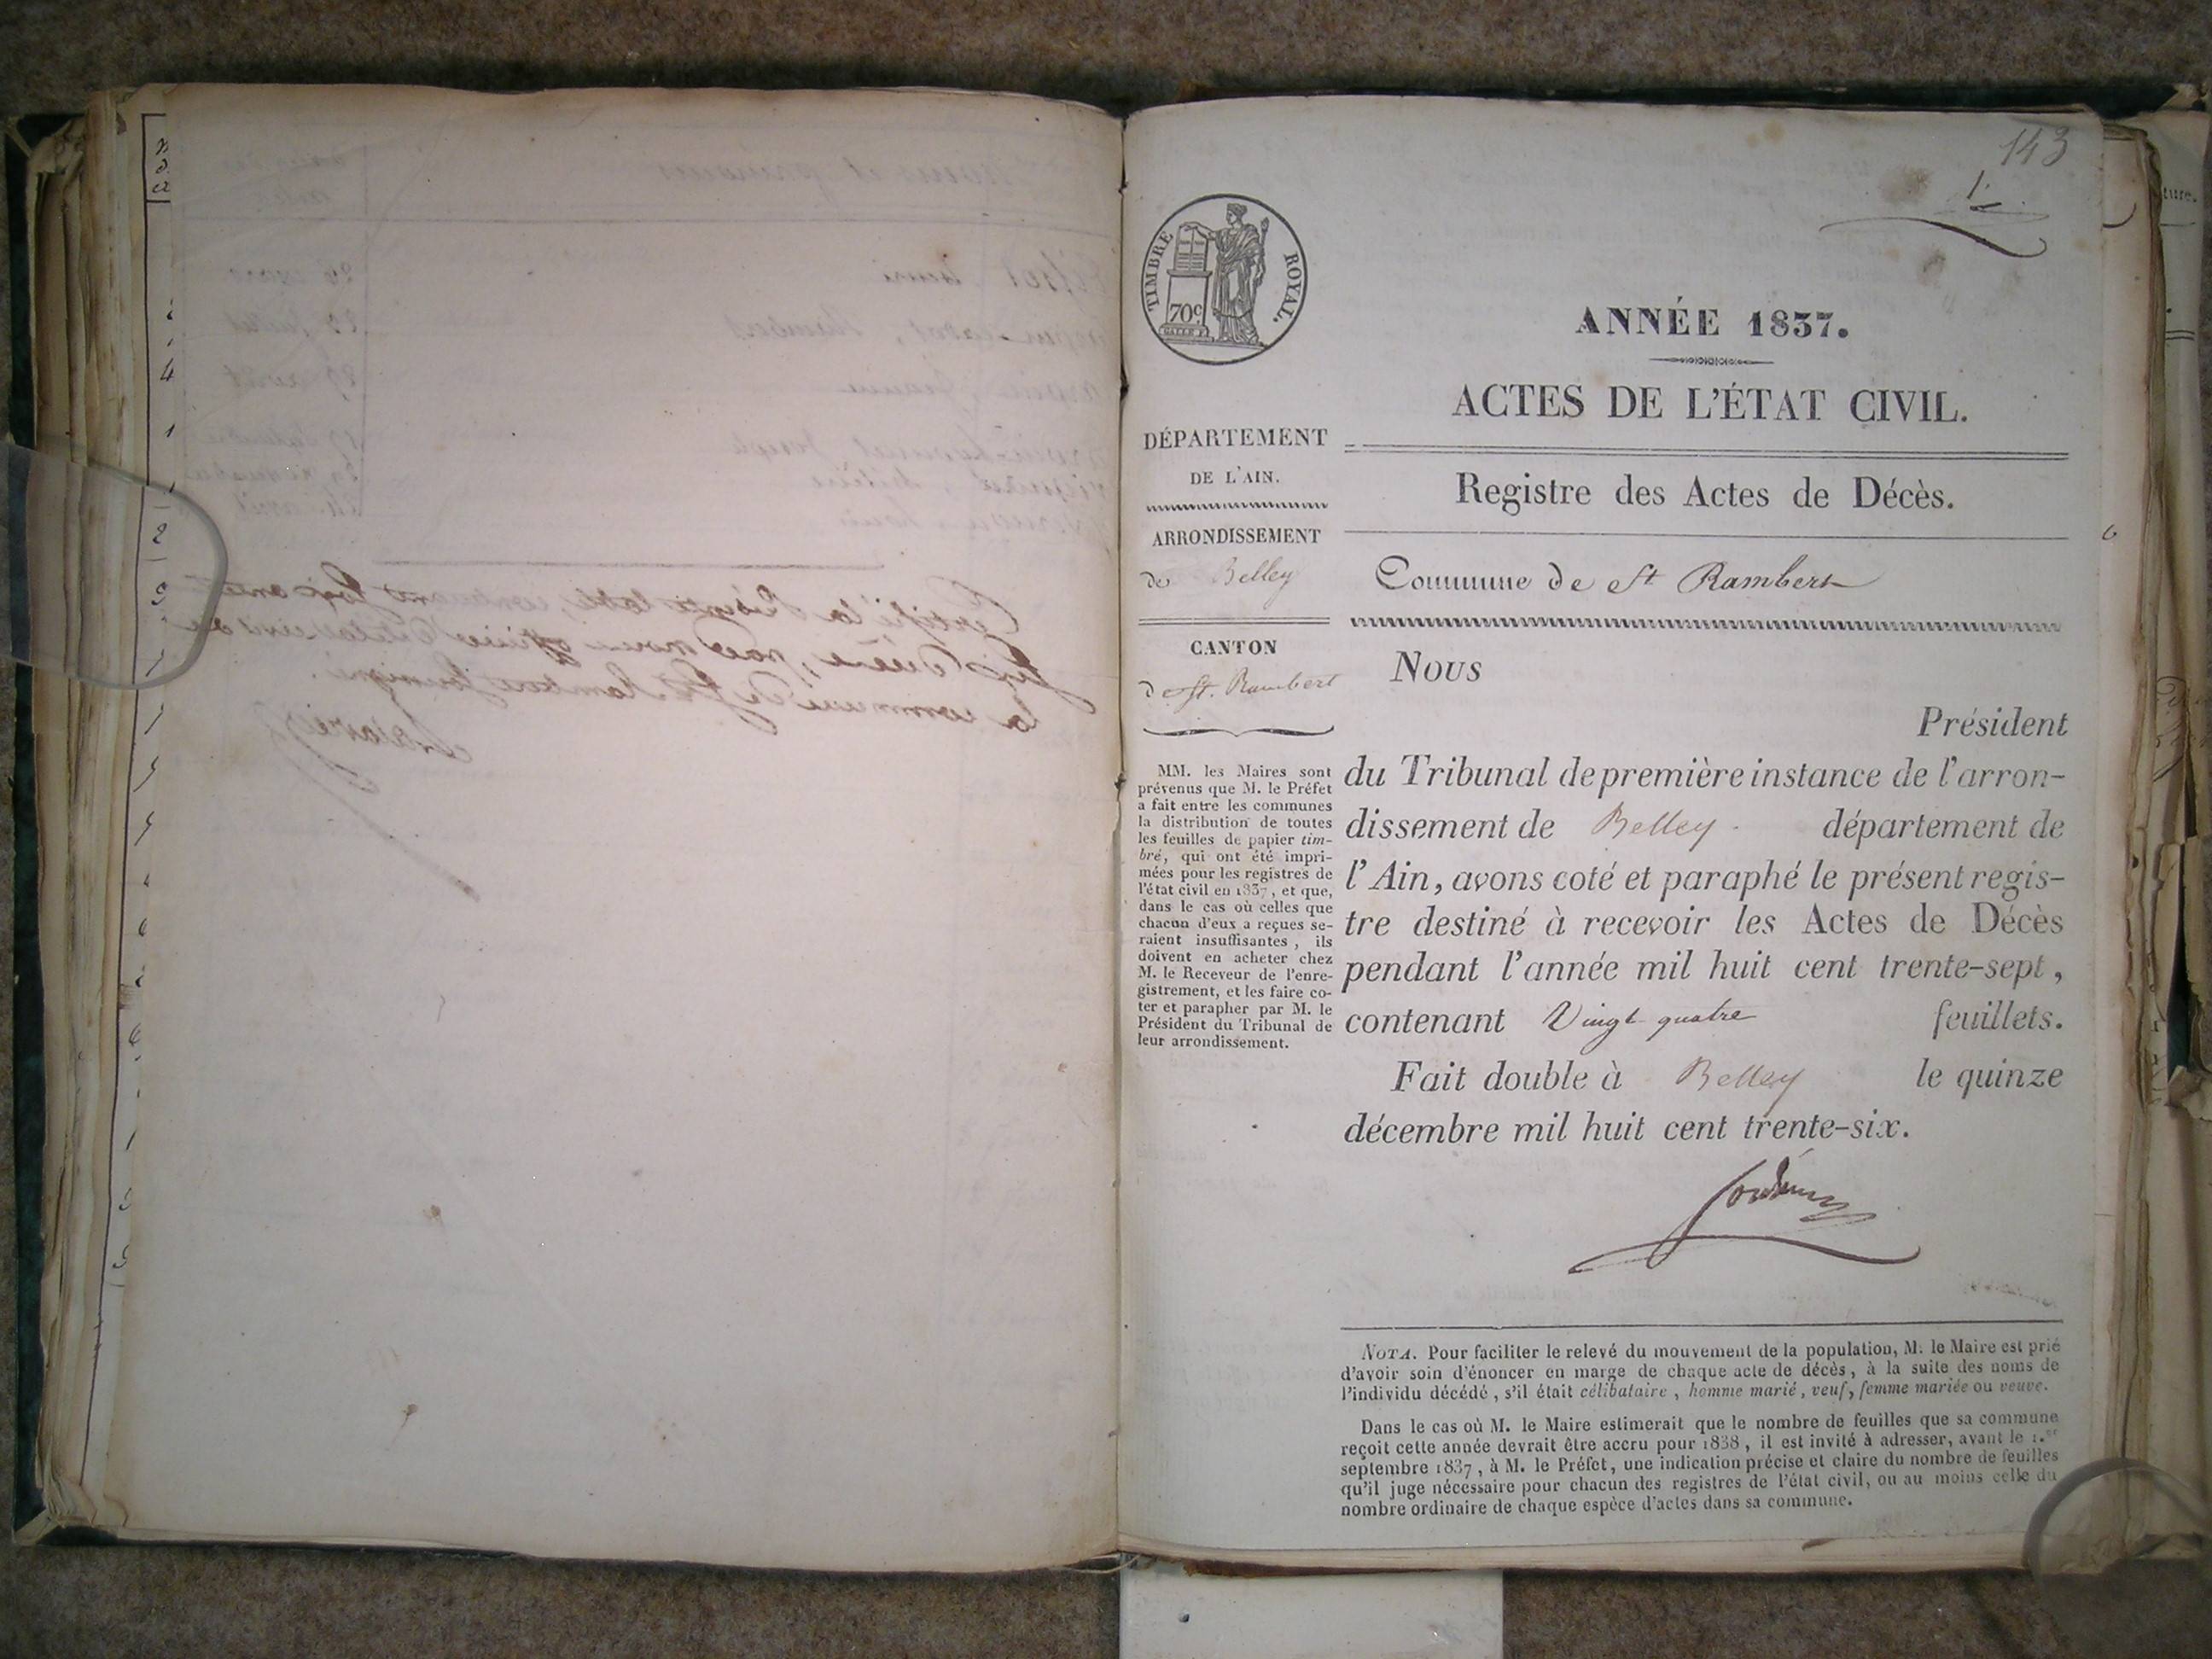 143
1
TIMBRE ROYAL.
70c
ANNÉE 1837.
ACTES DE L'ÉTAT CIVIL.
Registre des Actes de Décès.
Commune de St Rambert
DÉPARTEMENT
DE L'AIN.
ARRONDISSEMENT
de Belley
CANTON
de St. Rambert
MM. les Maires sont
prévenus que M. le Préfet
a fait entre les communes
la distribution de toutes
les feuilles de papier tim-
bré, qui ont été impri-
mées pour les registres de
l'état civil en 1837, et que,
dans le cas où celles que
chacun d'eux a reçues se-
raient insuffisantes, ils
doivent en acheter chez
M. le Receveur de l'enre-
gistrement, et les faire co-
ter et parapher par M. le
Président du Tribunal de
leur arrondissement.
Nous
Président
du Tribunal de première instance de l'arron-
dissement de Belley département de
l'Ain, avons coté et paraphé le présent regis-
tre destiné à recevoir les Actes de Décès
pendant l'année mil huit cent trente-sept,
contenant Vingt quatre feuillets.
Fait double à Belley le quinze
décembre mil huit cent trente-six.
NOTA. Pour faciliter le relevé du mouvement de la population, M. le Maire est prié
d'avoir soin d'énoncer en marge de chaque acte de décès, à la suite des noms de
l'individu décédé, s'il était célibataire, homme marié, veuf, femme mariée ou veuve.
Dans le cas où M. le Maire estimerait que le nombre de feuilles que sa commune
reçoit cette année devrait être accru pour 1838, il est invité à adresser, avant le 1.er
septembre 1837, à M. le Préfet, une indication précise et claire du nombre de feuilles
qu'il juge nécessaire pour chacun des registres de l'état civil, ou au moins celle du
nombre ordinaire de chaque espèce d'actes dans sa commune.